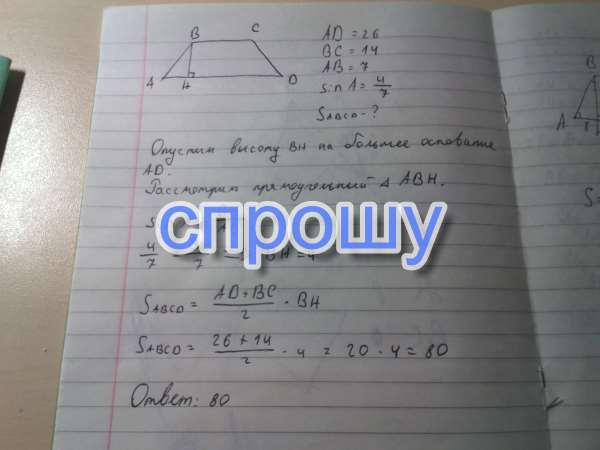 B C
A H D
AD = 26
BC = 14
AB = 7
sin A = 4/7
S ABCD - ?
Опустим высоту BH на большее основание
AD.
Рассмотрим прямоугольный △ ABH.
спрошу
4/7
BH = 4
S ABCD = (AD + BC)/2 · BH
S ABCD = (26 + 14)/2 · 4 = 20 · 4 = 80
Ответ: 80
B
A
S=